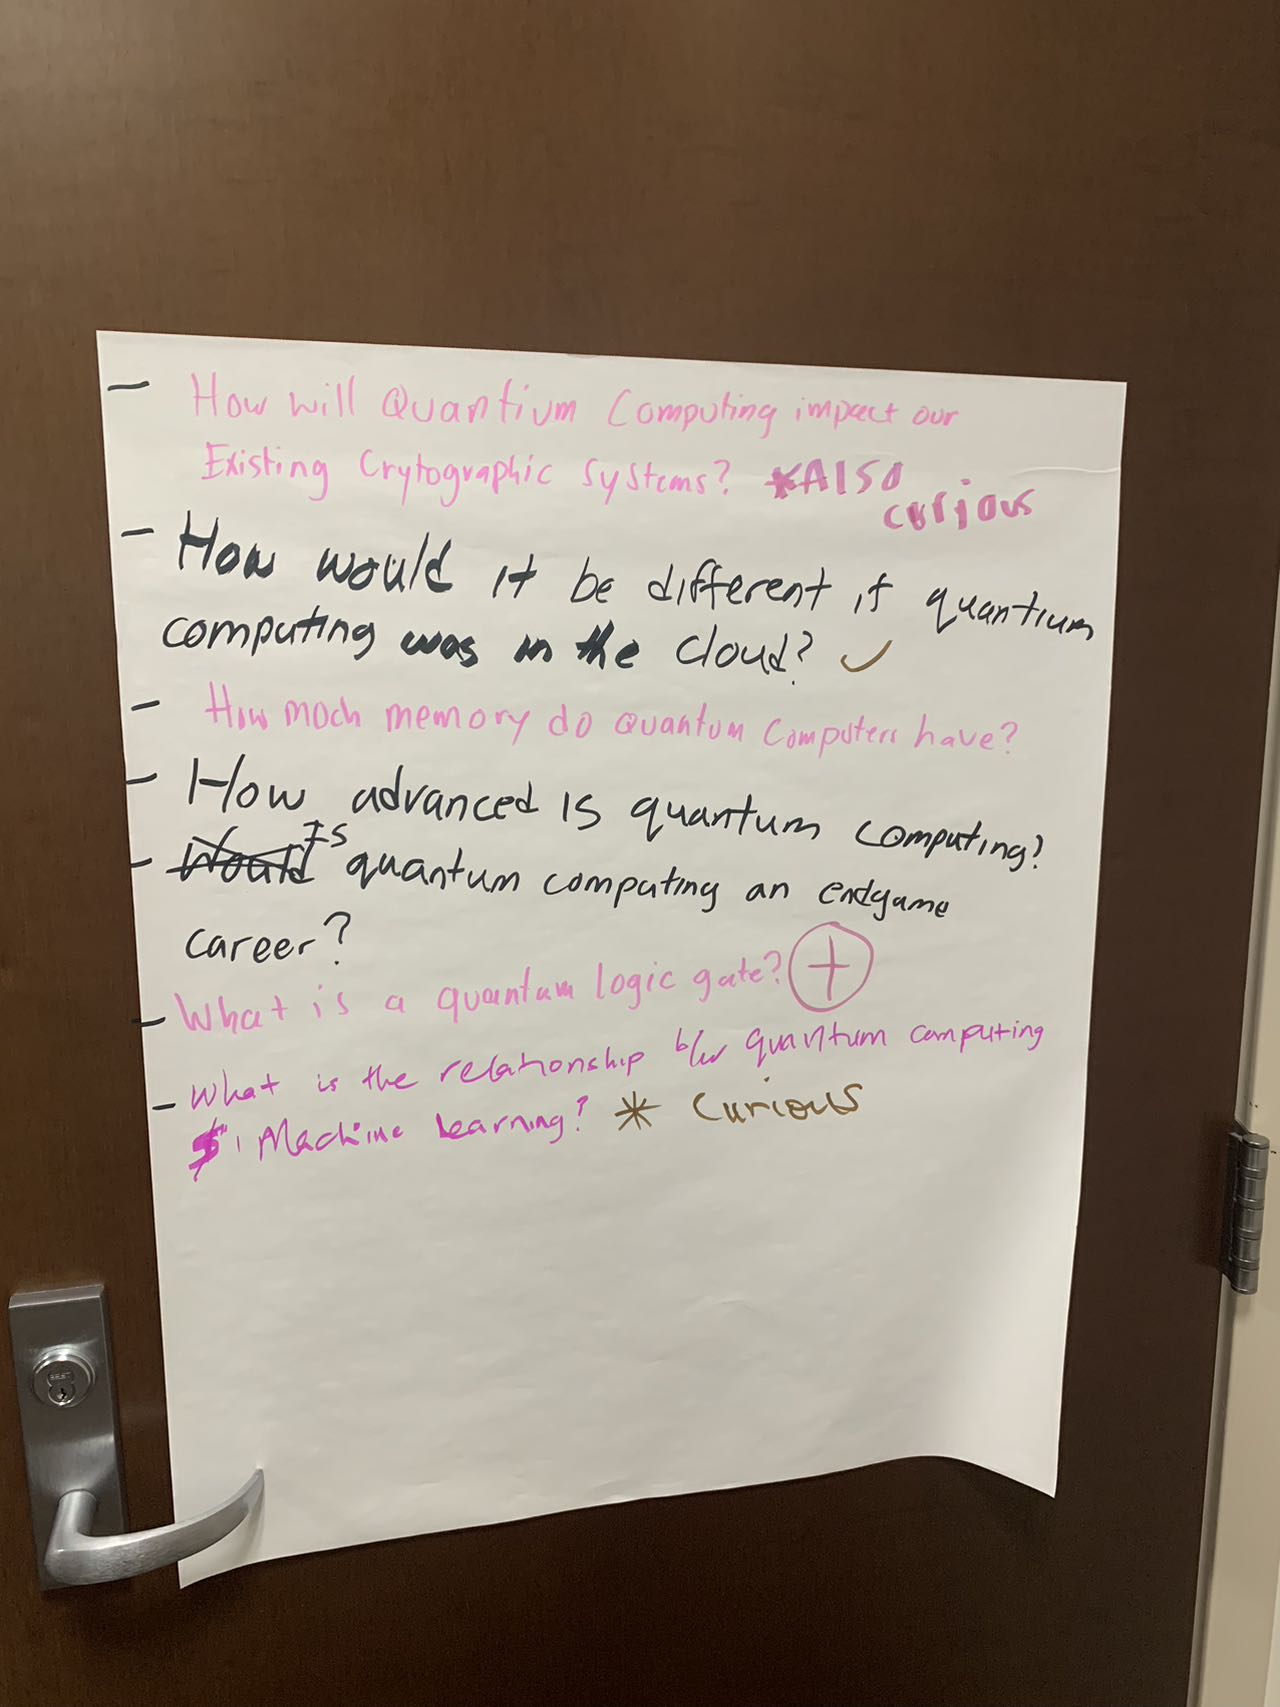 - How will Quantium Computing impact our
Existing Crytographic Systems? *Also
curious
- How would it be different if quantium
computing was in the cloud? ✓
- How moch memory do Quantum Computers have?
- How advanced is quantum computing?
- Would Is quantum computing an endgame
career?
- What is a quantum logic gate? +
- What is the relationship b/w quantum computing
Machine Learning? * Curious